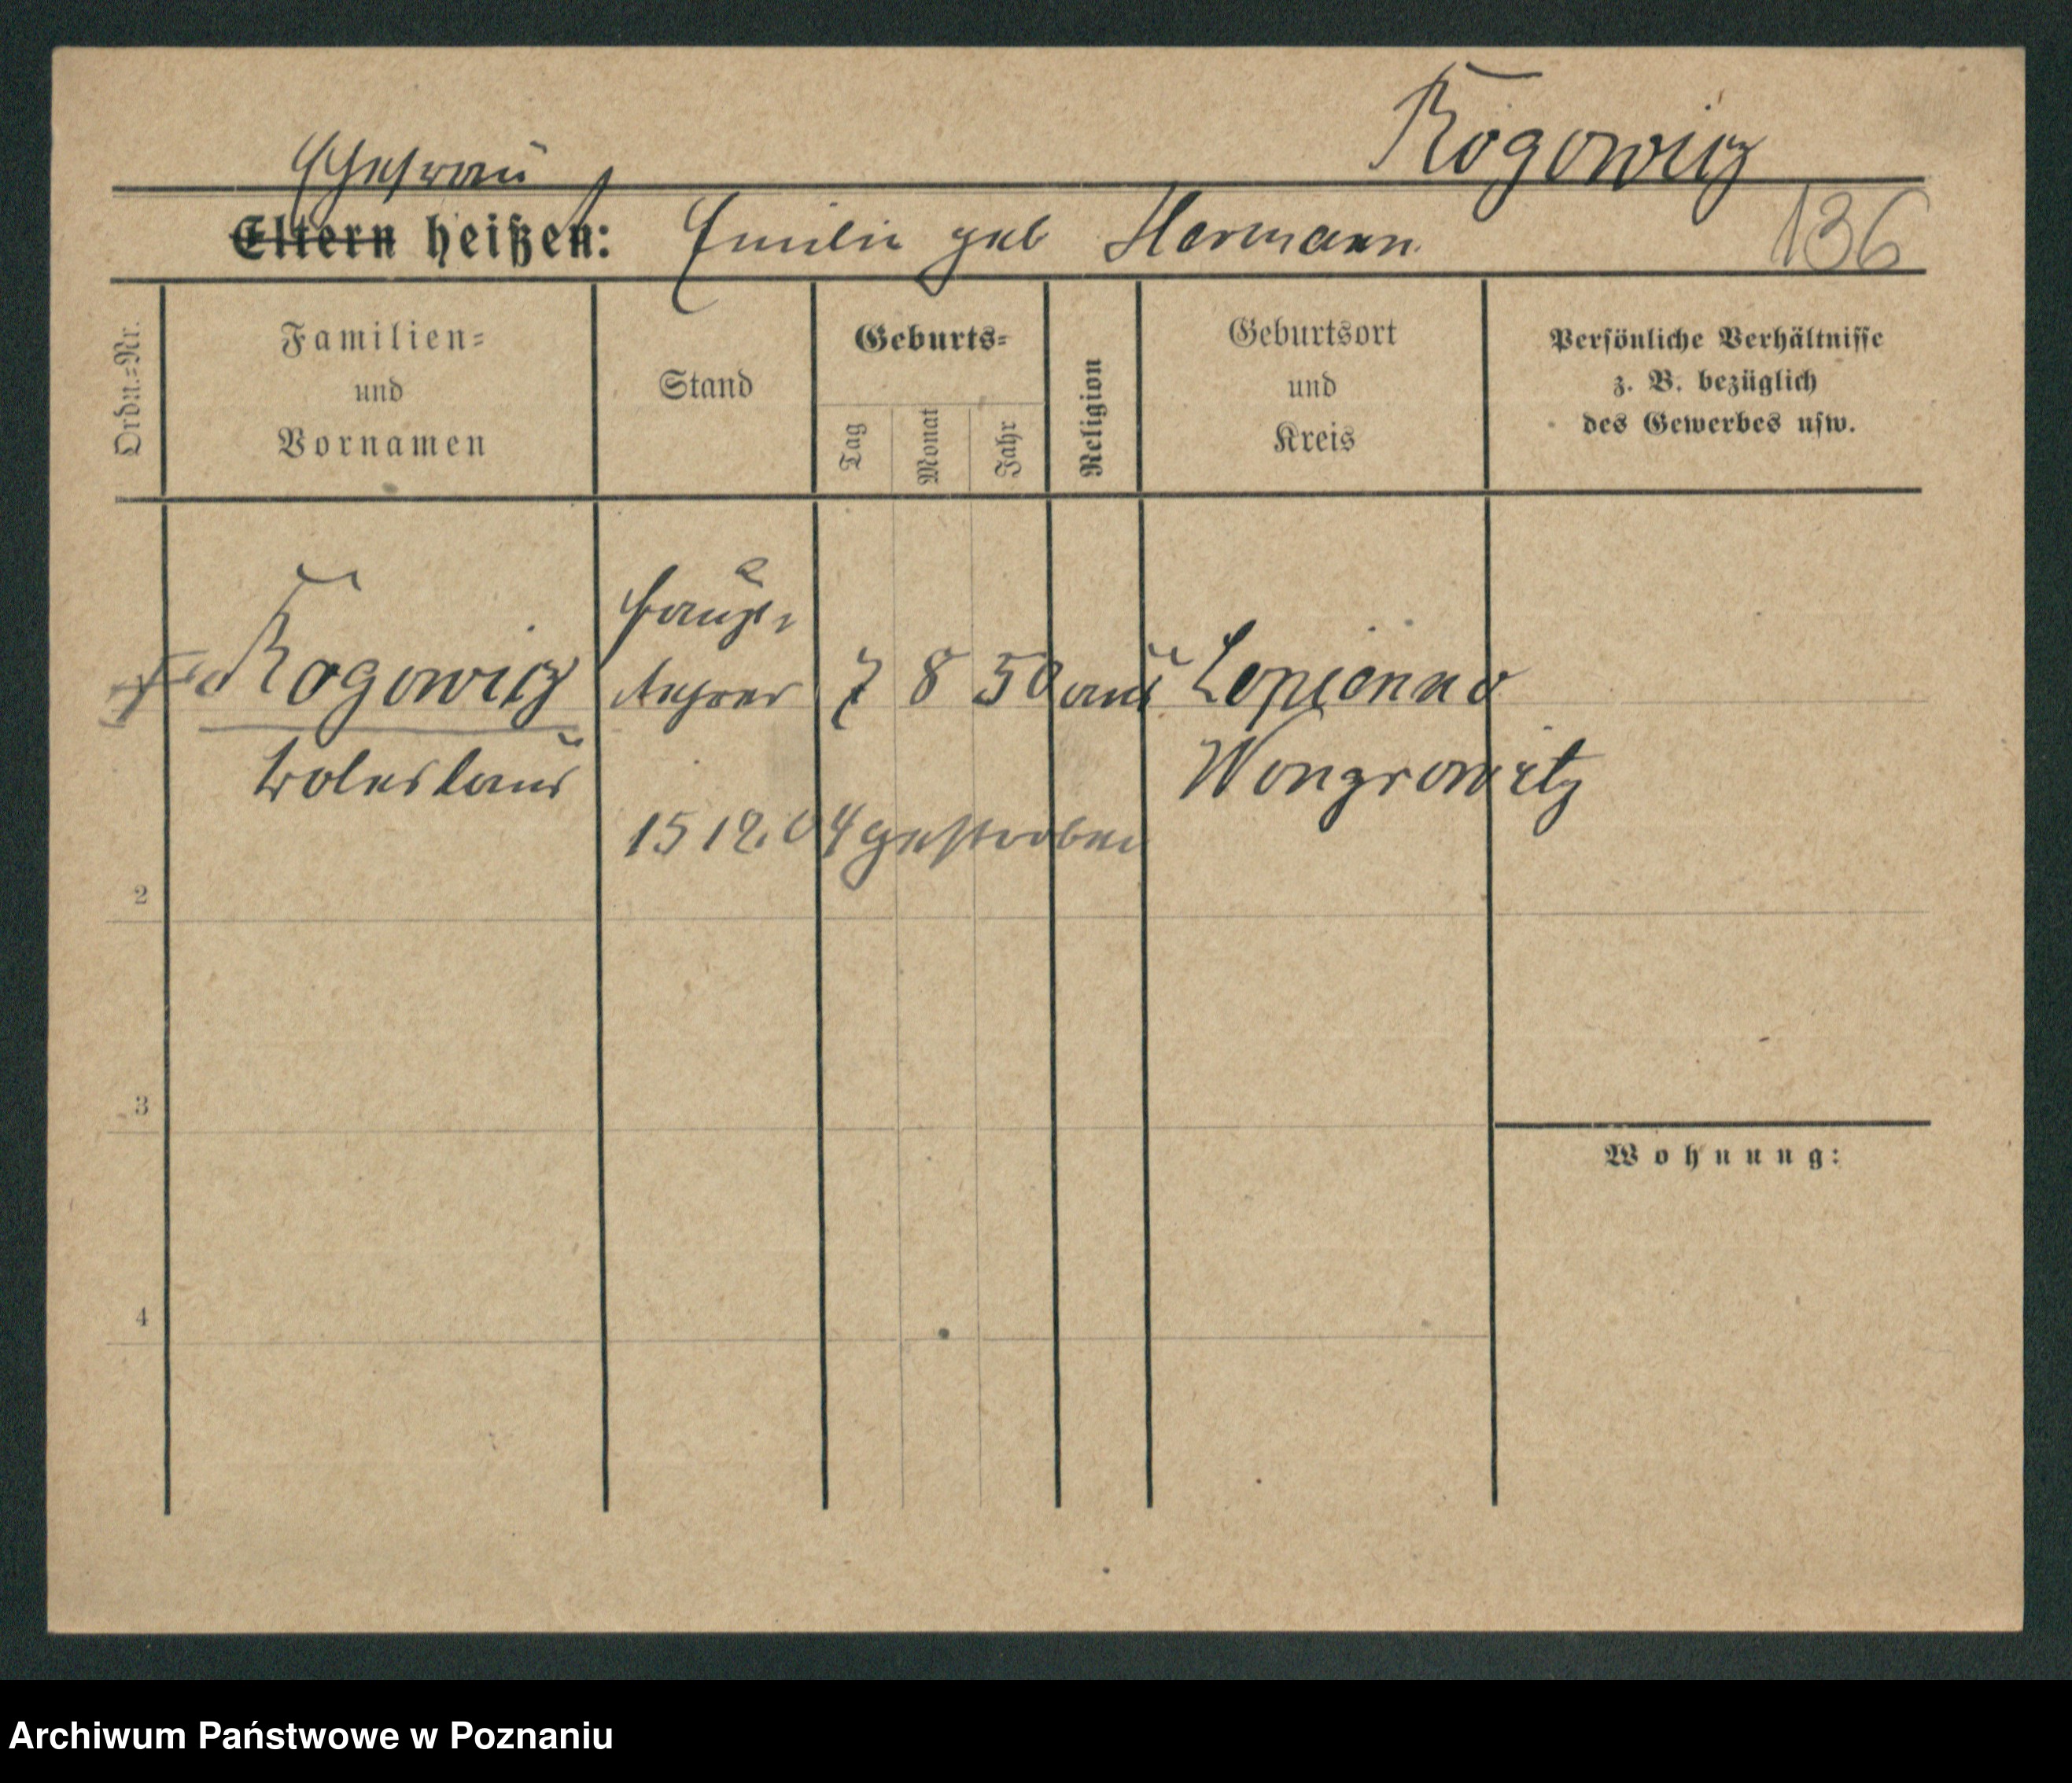 Rogowicz
Ehefrau
Eltern heißen: Emilie geb Hermann
136
Ordn.=Nr.
Familien=
und
Vornamen
Stand
Geburts=
Tag
Monat
Jahr
Religion
Geburtsort
und
Kreis
Persönliche Verhältnisse
z. B. bezüglich
des Gewerbes usw.
Haupt-
Rogowicz lehrer 7 8 50 Lopienno
Boleslaus Wongrowitz
15 12. 04 gestorben
2
3
Wohnung:
4
Archiwum Państwowe w Poznaniu